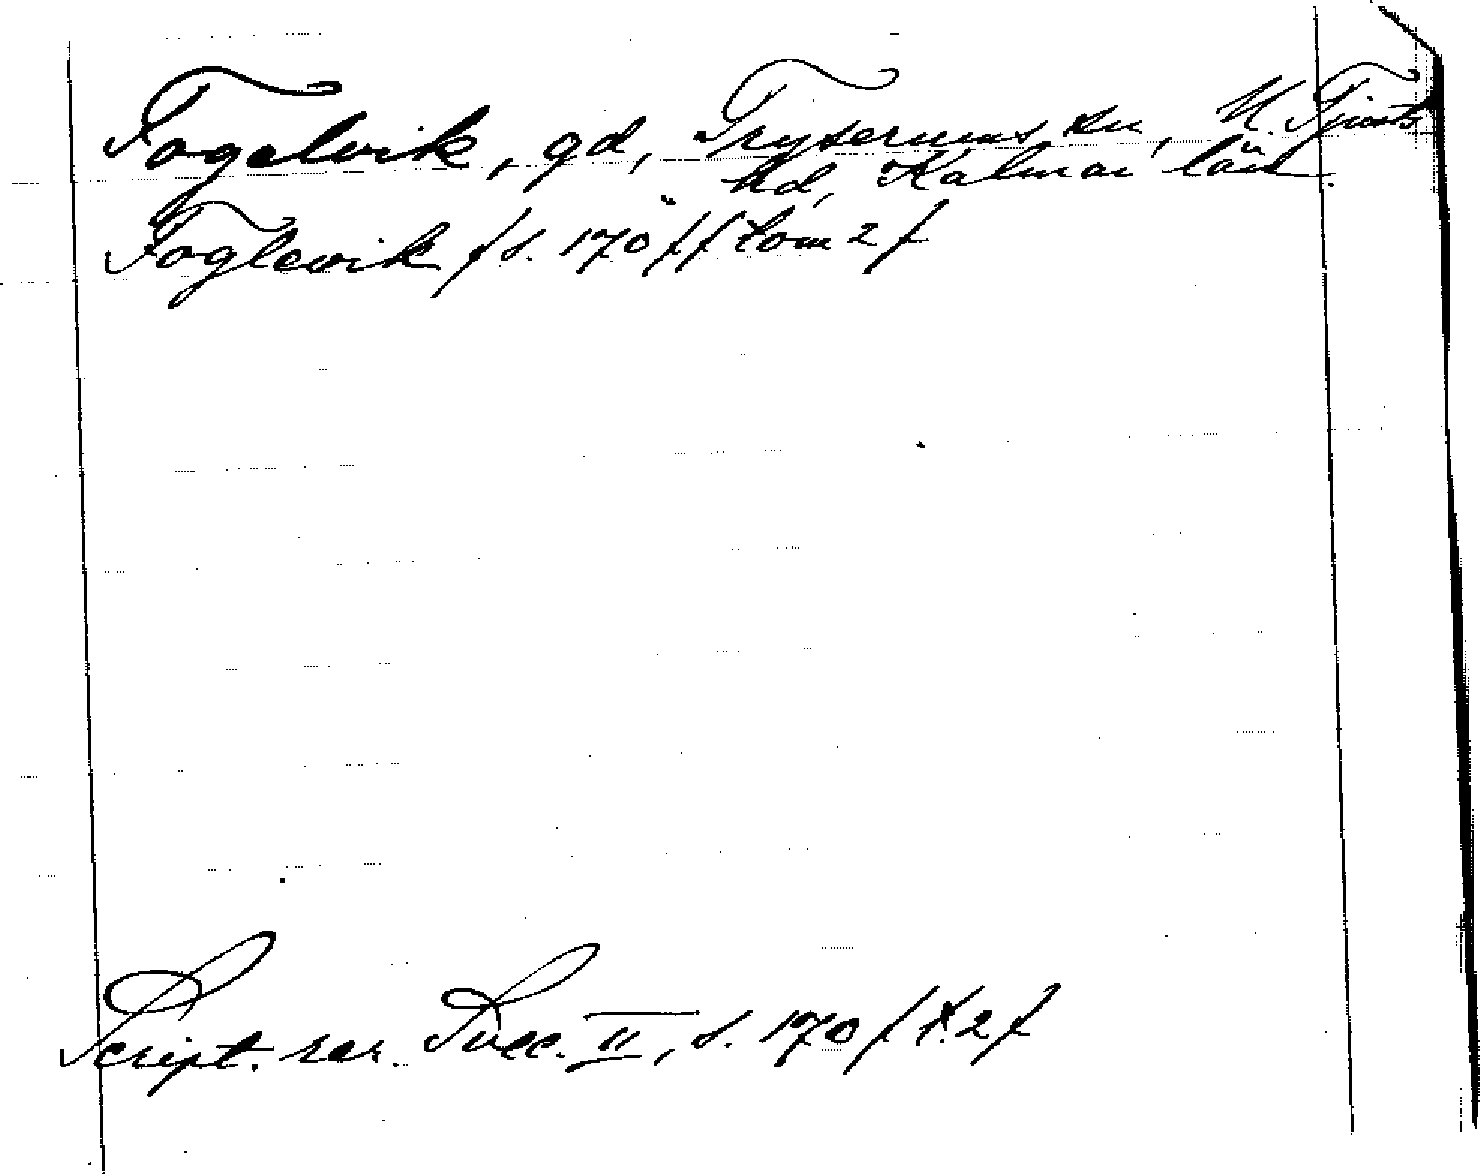 Fogelvik, gd, Tryserums sn, N. Tjusts
hd, Kalmar län.
Foglevik /s. 170/ /tom 2/
Script. rer. Svec. II, s. 170 /t. 2/